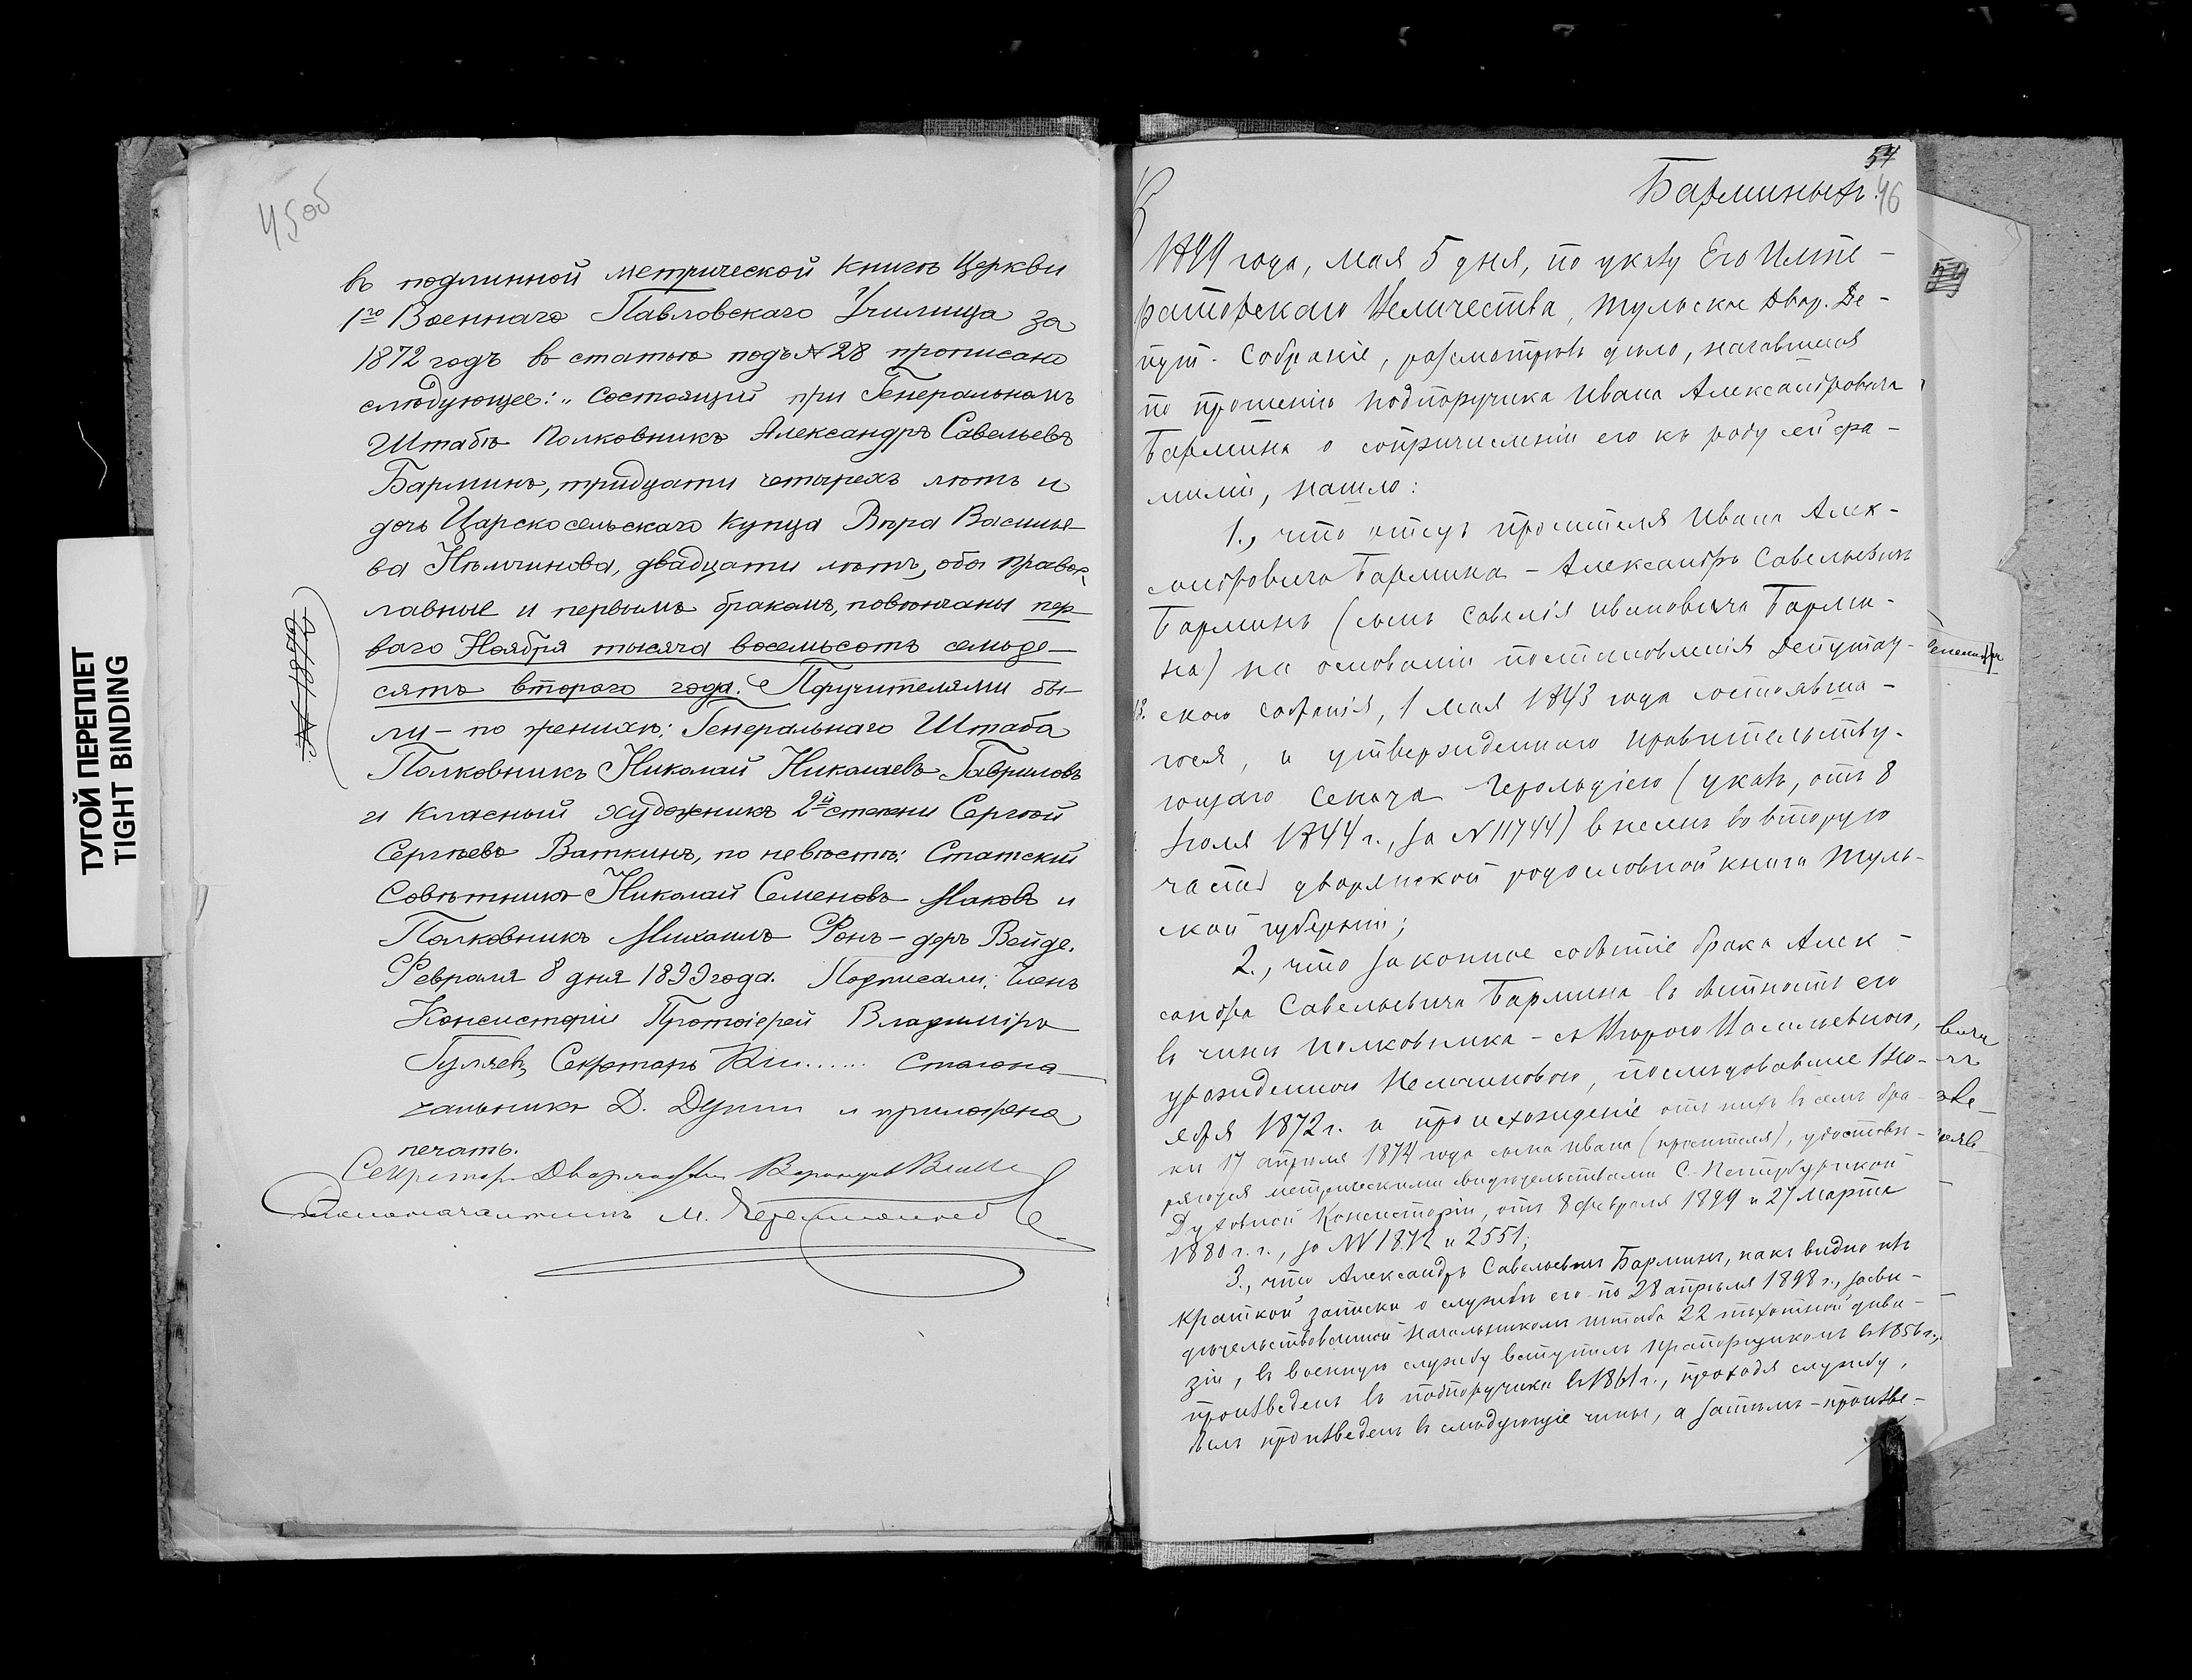 ТУГОЙ ПЕРЕПЛЕТ
TIGHT BINDING
45об
въ подлинной метрической книгѣ Церкви
1го Военнаго Павловскаго Училища за
1872 годъ въ статьѣ подъ № 28 прописано
слѣдующее: „Состоящій при Генеральномъ
Штабѣ Полковникъ Александръ Савельевъ
Барминъ, тридцати четырехъ лѣтъ и
дочь Царскосельскаго купца Вѣра Василье-
ва Нѣмчинова, двадцати лѣтъ, оба правос-
лавные и первымъ бракомъ, повѣнчаны пер-
ваго Ноября тысяча восемьсотъ семьде-
сятъ второго года. Поручителями бы-
ли – по женихѣ: Генеральнаго Штаба
Полковникъ Николай Николаевъ Гавриловъ
и Класный художникъ 2й степени Сергѣй
Сергѣевъ Ваткинъ, по невѣстѣ: Статскій
Совѣтникъ Николай Семеновъ Маковъ и
Полковникъ Михаилъ Фонъ-деръ Вейде.
Февраля 8 дня 1899 года. Подписали: Членъ
Консисторіи Протоіерей Владиміръ
Гуляевъ, Секретарь ...... Столона-
чальникъ Д. и приложена
печать.
Секретарь Дворянства
Столоначальникъ М.
№ 1872
54
Барминыхъ.
46
1899 года, мая 5 дня, по указу Его Импе-
раторскаго Величества, Тульское Двор. Де-
пут. Собраніе, разсмотрѣвъ дѣло, начавшееся
по прошенію подпоручика Ивана Александровича
Бармина о сопричисленіи его къ роду сей фа-
миліи, нашло:
1., что отецъ просителя Ивана Алек-
сандровича Бармина – Александръ Савельевичъ
Барминъ (сынъ Савелія Ивановича Барми-
на) на основаніи постановленія Депутат-
скаго собранія, 1 мая 1843 года состоявша-
гося, и утвержденнаго Правительству-
ющаго Сената Герольдіею (указъ, отъ 8
іюля 1844 г., за № 11744) внесенъ во вторую
часть дворянской родословной книги Туль-
ской губерніи;
2., что законное событіе брака Алек-
сандра Савельевича Бармина въ бытность его
въ чинѣ полковника – съ Вѣрою Васильевною,
урожденною Немчиновою, послѣдовавшее 1 но-
ября 1872 г. и происхожденіе отъ нихъ въ семъ бра-
кѣ 17 апрѣля 1874 года сына Ивана (просителя), удостовѣ-
ряются метрическими свидѣтельствами С.-Петербургской
Духовной Консисторіи, отъ 8 февраля 1899 и 27 марта
1880 г.г., за №№ 1872 и 2551;
3., что Александръ Савельевичъ Барминъ, какъ видно изъ
краткой записки о службѣ его по 28 апрѣля 1898 г., засви-
дѣтельствованной Начальникомъ штаба 22 пѣхотной диви-
зіи, въ военную службу вступилъ прапорщикомъ въ 1856 г.,
произведенъ въ подпоручики въ 1861 г., проходя службу,
былъ произведенъ въ слѣдующіе чины, а затѣмъ – произве-